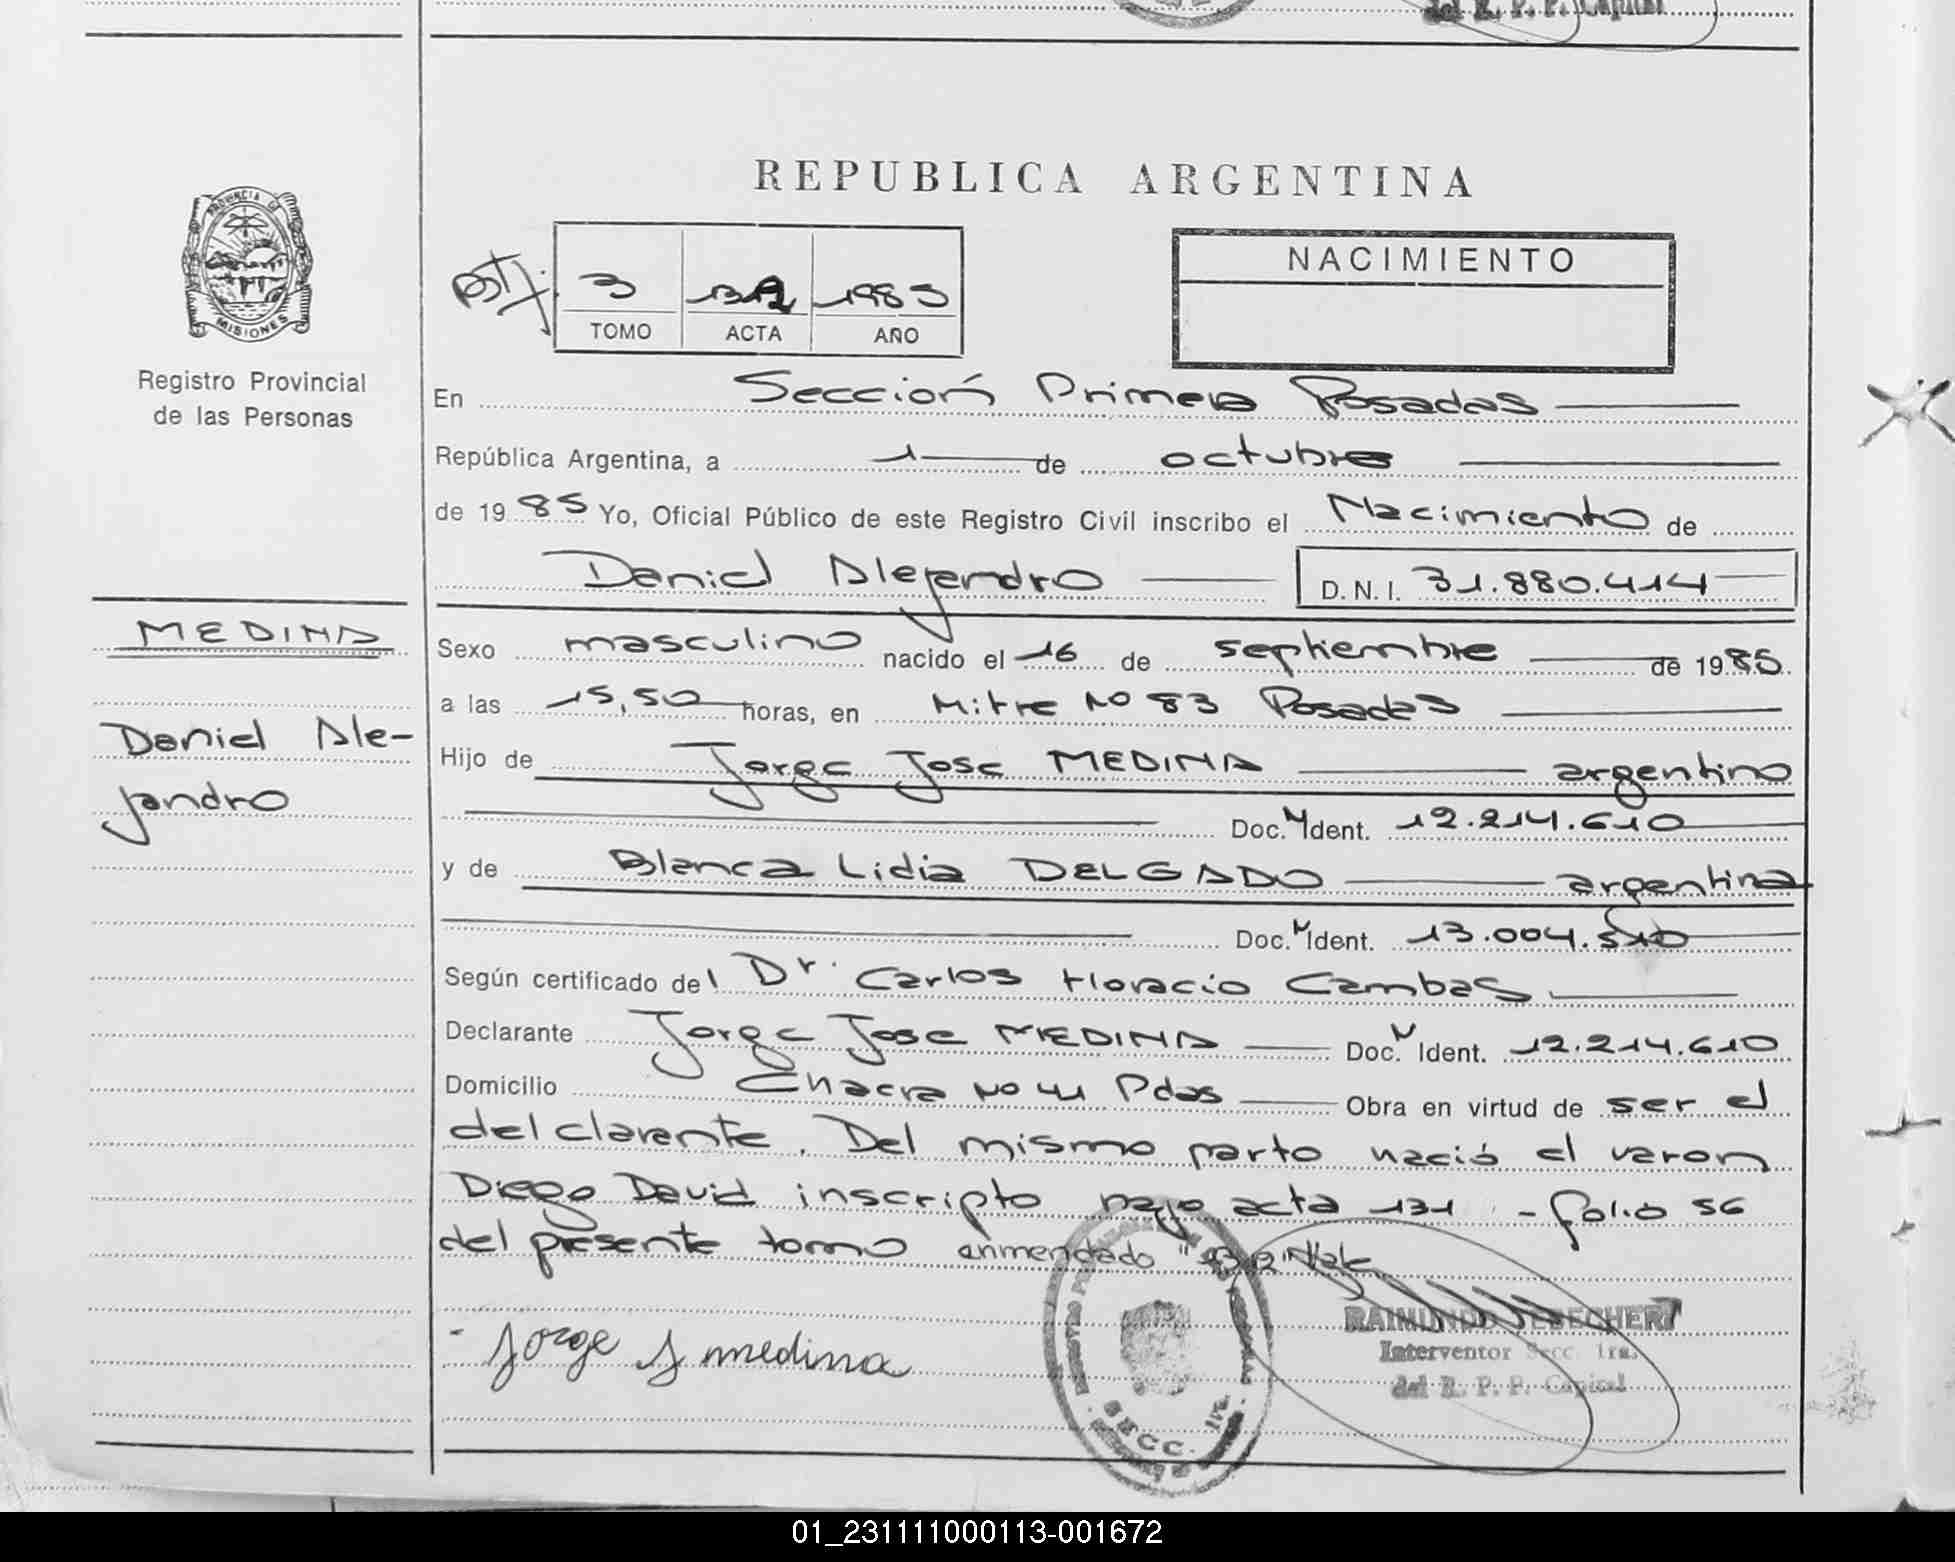 del R. P. P. Capital
REPUBLICA ARGENTINA
PROVINCIA DE
MISIONES
Registro Provincial
de las Personas
3 132 1985
TOMO ACTA AÑO
NACIMIENTO
En Sección Primera Posadas
República Argentina, a 1 de octubre
de 1985 Yo, Oficial Público de este Registro Civil inscribo el Nacimiento de
Daniel Alejandro D. N. I. 31.880.414
MEDINA
Daniel Ale-
jandro
Sexo masculino nacido el 16 de septiembre de 1985
a las 15,50 horas, en Mitre No 83 Posadas
Hijo de Jorge Jose MEDINA argentino
Doc. N Ident. 12.214.610
y de Blanca Lidia DELGADO argentina
Doc. N Ident. 13.004.510
Según certificado del Dr. Carlos Horacio Cambas
Declarante Jorge Jose MEDINA Doc. N Ident. 12.214.610
Domicilio Chacra No 41 Pdas Obra en virtud de ser el
delclarante. Del mismo parto nació el varon
Diego David inscripto bajo acta 131 - folio 56
del presente tomo enmendado "132" Vale
Jorge J medina
RAIMUNDO
Interventor Secc. 1ra.
del R. P. P. Capital
SECC. 1ra.
01_231111000113-001672